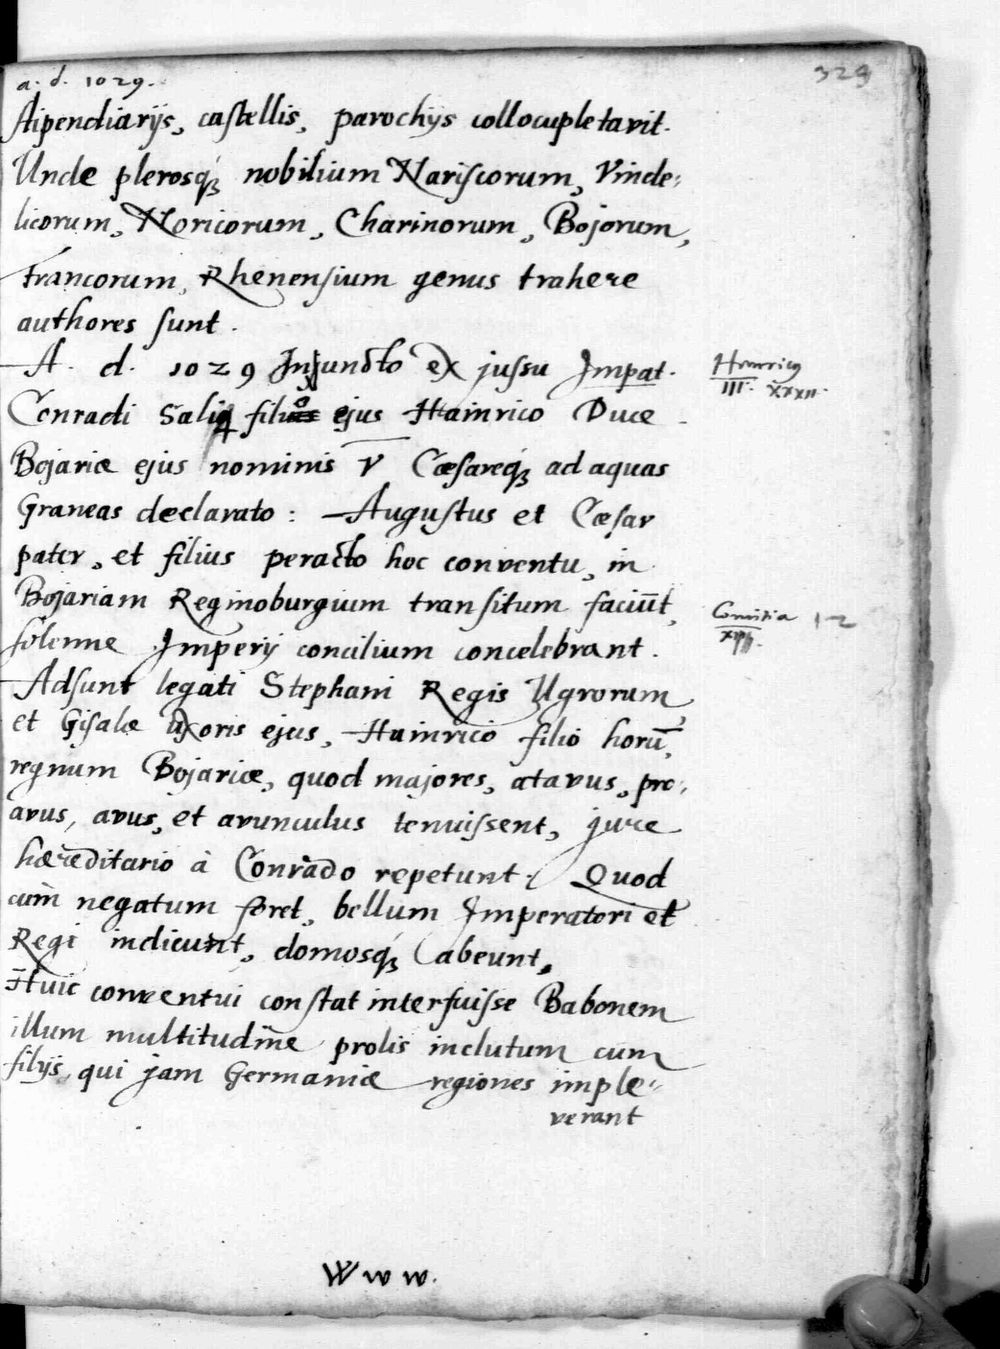 a. d. 1029.
329
stipendiarijs, castellis, parochijs collocupletavit.
Unde plerosq́ꝫ nobilium Nariscorum, Vinde-
licorum, Noricorum, Charinorum, Bojorum,
Francorum, Rhenensium genus trahere
authores sunt.
A. d. 1029 Injuncto ex jussu Impat.
Henricus
III. XXXII.
Conradi Salij filio ejus Hainrico Duce
Bojariæ ejus nominis V Cæsareq́ꝫ ad aquas
Graneas declarato: Augustus et Cæsar
pater, et filius peracto hoc conventu, in
Bojariam Reginoburgium transitum faciūt,
Comitia 12
solenne Imperij concilium concelebrant.
Adsunt legati Stephani Regis Ugrorum
et Gisalæ uxoris ejus, Hainrico filio horū,
regnum Bojariæ, quod majores, atavus, pro-
avus, avus, et avunculus tenuissent, jure
hæreditario à Conrado repetunt. Quod
cùm negatum foret, bellum Imperatori et
Regi indicunt, domosq́ꝫ abeunt,
Huic conventui constat interfuisse Babonem
illum multitudine prolis inclutum cum
filijs, qui jam Germaniæ regiones imple-
verant
W w w.